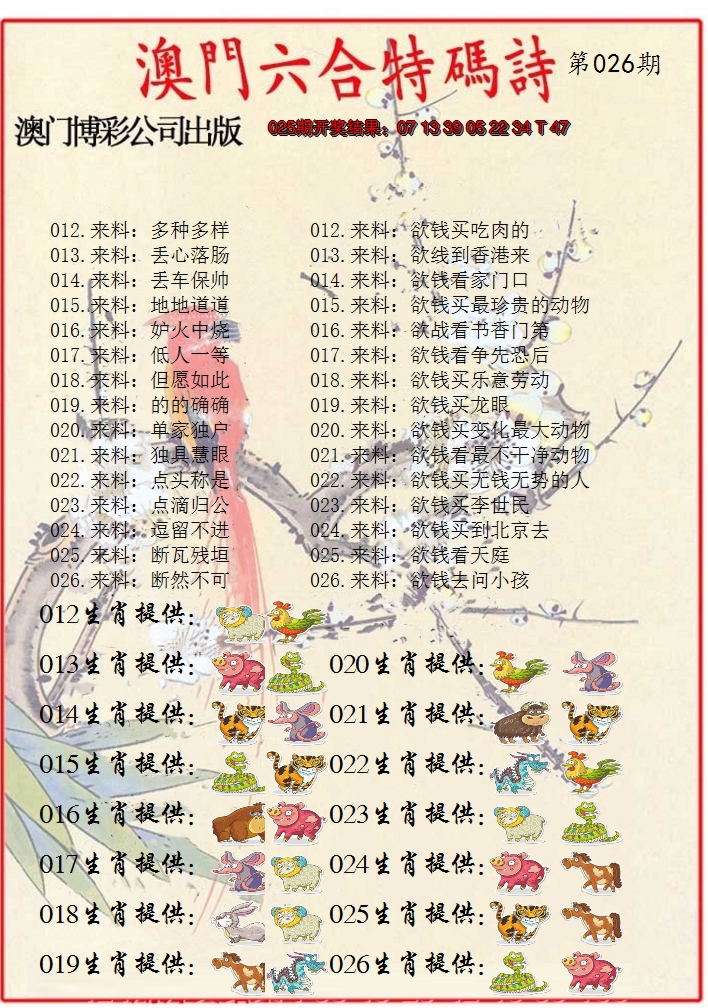 澳門六合特碼詩 第026期
澳门博彩公司出版 025期开奖结果：07 13 39 05 22 34 T 47
012.来料：多种多样 012.来料：欲钱买吃肉的
013.来料：丢心落肠 013.来料：欲线到香港来
014.来料：丢车保帅 014.来料：欲钱看家门口
015.来料：地地道道 015.来料：欲钱买最珍贵的动物
016.来料：妒火中烧 016.来料：欲战看书香门第
017.来料：低人一等 017.来料：欲钱看争先恐后
018.来料：但愿如此 018.来料：欲钱买乐意劳动
019.来料：的的确确 019.来料：欲钱买龙眼
020.来料：单家独户 020.来料：欲钱买变化最大动物
021.来料：独具慧眼 021.来料：欲钱看最不干净动物
022.来料：点头称是 022.来料：欲钱买无钱无势的人
023.来料：点滴归公 023.来料：欲钱买李世民
024.来料：逗留不进 024.来料：欲钱买到北京去
025.来料：断瓦残垣 025.来料：欲钱看天庭
026.来料：断然不可 026.来料：欲钱去问小孩
012生肖提供：
013生肖提供： 020生肖提供：
014生肖提供： 021生肖提供：
015生肖提供： 022生肖提供：
016生肖提供： 023生肖提供：
017生肖提供： 024生肖提供：
018生肖提供： 025生肖提供：
019生肖提供： 026生肖提供：